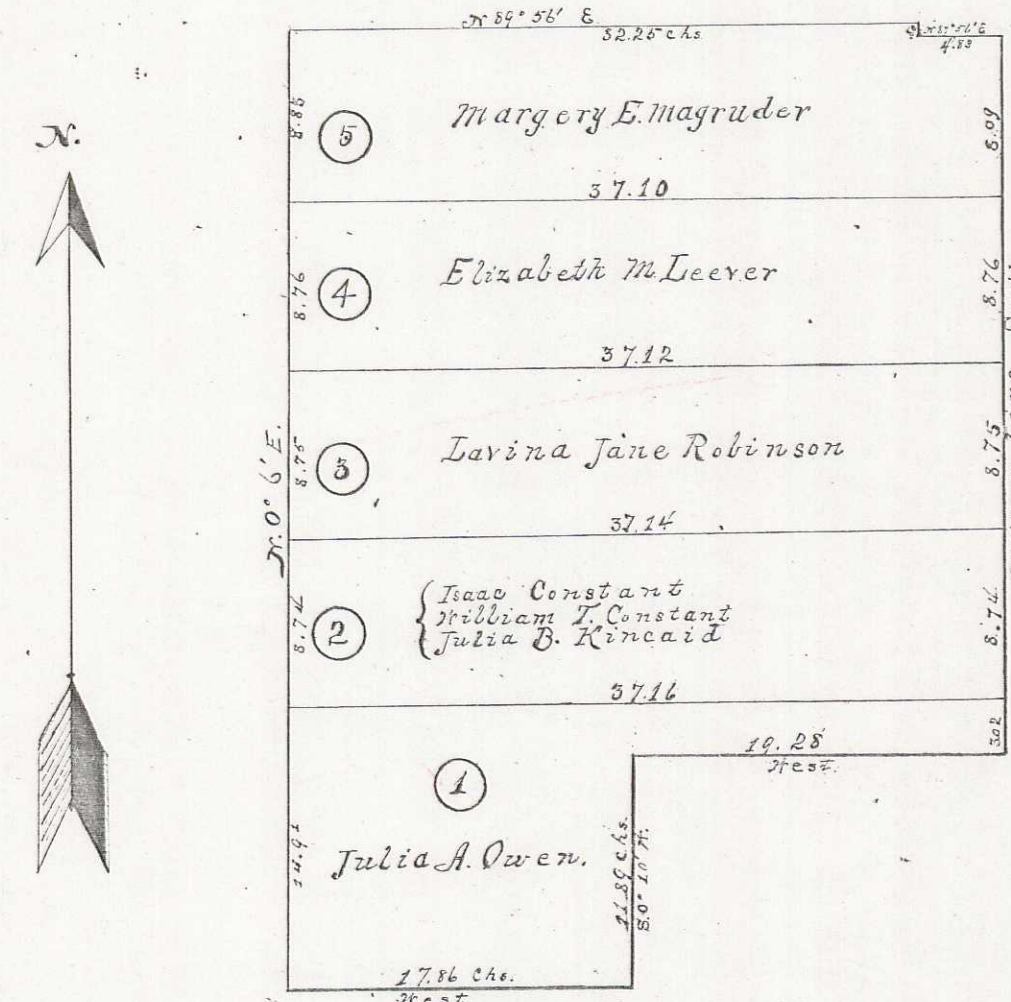 N 89° 56' E
32.25 chs
4.83
N.
8.85
5
Margery E. Magruder
8.09
37.10
8.76
4
Elizabeth M. Leever
8.76
37.12
N. 0° 6' E.
8.75
3
Lavina Jane Robinson
8.75
37.14
8.74
2
Isaac Constant
William T. Constant
Julia B. Kincaid
8.74
37.16
3.02
19.28
West.
1
14.91
Julia A. Owen.
11.89 chs.
S. 0° 10' W.
17.86 Chs.
West